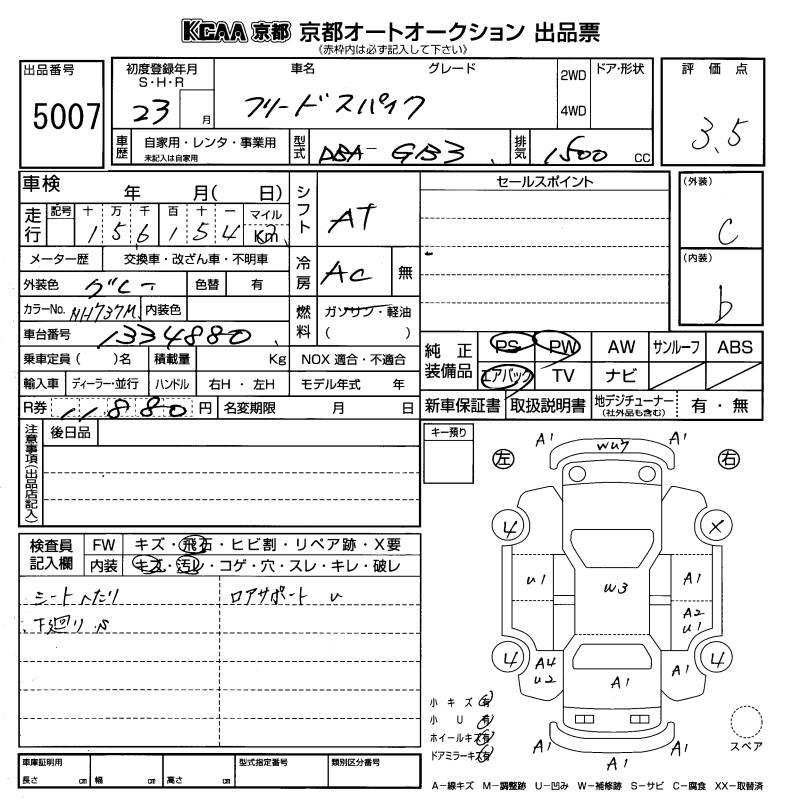 KCAA 京都 京都オートオークション 出品票
《赤枠内は必ず記入して下さい》
出品番号 5007
初度登録年月 S・H・R 23 月
車名 グレード フリードスパイク
2WD 4WD ドア・形状
評価点 3.5
車歴 自家用・レンタ・事業用 未記入は自家用
型式 DBA-GB3
排気 1500 CC
車検 年 月( 日)
シフト AT
セールスポイント
(外装) C
(内装) b
走行 記号 十 万 千 百 十 一 マイル Km
1 5 6 1 5 4
メーター歴 交換車・改ざん車・不明車
冷房 AC 無
外装色 グレー 色替 有
カラーNo. NH737M 内装色
燃料 ガソリン・軽油 ( )
車台番号 1334880
乗車定員 ( )名 積載量 Kg NOX 適合・不適合
輸入車 ディーラー・並行 ハンドル 右H・左H モデル年式 年
R券 11880 円 名変期限 月 日
純正装備品 PS PW AW サンルーフ ABS
エアバック TV ナビ
新車保証書 取扱説明書 地デジチューナー (社外品も含む) 有・無
注意事項(出品店記入)
後日品
キー預り
検査員記入欄 FW キズ・飛石・ヒビ割・リペア跡・X要
内装 キズ・汚レ・コゲ・穴・スレ・キレ・破レ
シートへたり ロアサポート U
下廻りS
左 右
A1 WU7 A1
4 X
U1 W3 A1
A2
U1
4 A4 U2 A1 A1 4
A1 A1 A1
小キズ 有
小U 有
ホイールキズ 有
ドアミラーキズ 有
スペア
車庫証明用 長さ cm 幅 cm 高さ cm
型式指定番号 類別区分番号
A−線キズ M−調整跡 U−凹み W−補修跡 S−サビ C−腐食 XX−取替済